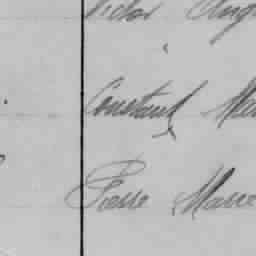 Victor Aug
Constant Ma
Pierre Marc